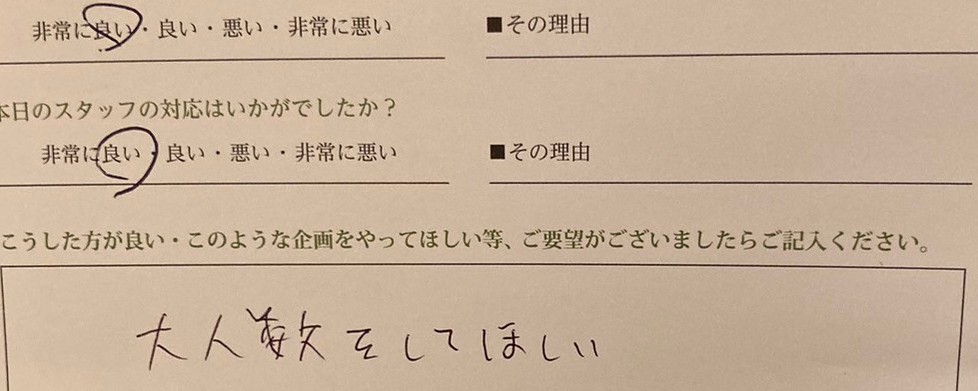 非常に良い・良い・悪い・非常に悪い ■その理由
本日のスタッフの対応はいかがでしたか？
非常に良い・良い・悪い・非常に悪い ■その理由
こうした方が良い・このような企画をやってほしい等、ご要望がございましたらご記入ください。
大人数をしてほしい